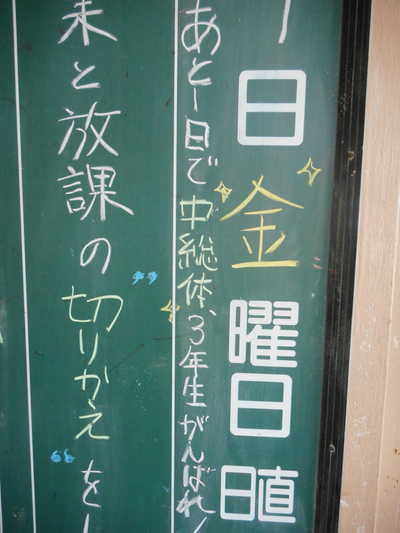 日金曜日直
あと1日で中総体、3年生がんばれ!
来と放課の"切りかえ"を